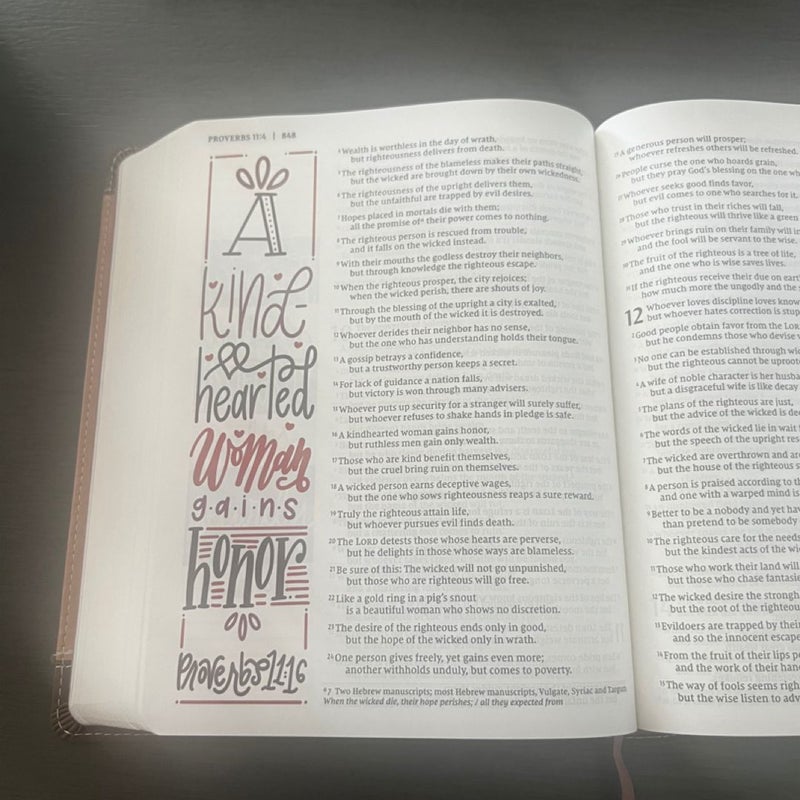 PROVERBS 11:4 | 848
A
kind-
hearted
Woman
gains
honor
Proverbs 11:16
⁴Wealth is worthless in the day of wrath,
but righteousness delivers from death.
⁵The righteousness of the blameless makes their paths straight,
but the wicked are brought down by their own wickedness.
⁶The righteousness of the upright delivers them,
but the unfaithful are trapped by evil desires.
⁷Hopes placed in mortals die with them;
all the promise ofᵃ their power comes to nothing.
⁸The righteous person is rescued from trouble,
and it falls on the wicked instead.
⁹With their mouths the godless destroy their neighbors,
but through knowledge the righteous escape.
¹⁰When the righteous prosper, the city rejoices;
when the wicked perish, there are shouts of joy.
¹¹Through the blessing of the upright a city is exalted,
but by the mouth of the wicked it is destroyed.
¹²Whoever derides their neighbor has no sense,
but the one who has understanding holds their tongue.
¹³A gossip betrays a confidence,
but a trustworthy person keeps a secret.
¹⁴For lack of guidance a nation falls,
but victory is won through many advisers.
¹⁵Whoever puts up security for a stranger will surely suffer,
but whoever refuses to shake hands in pledge is safe.
¹⁶A kindhearted woman gains honor,
but ruthless men gain only wealth.
¹⁷Those who are kind benefit themselves,
but the cruel bring ruin on themselves.
¹⁸A wicked person earns deceptive wages,
but the one who sows righteousness reaps a sure reward.
¹⁹Truly the righteous attain life,
but whoever pursues evil finds death.
²⁰The LORD detests those whose hearts are perverse,
but he delights in those whose ways are blameless.
²¹Be sure of this: The wicked will not go unpunished,
but those who are righteous will go free.
²²Like a gold ring in a pig's snout
is a beautiful woman who shows no discretion.
²³The desire of the righteous ends only in good,
but the hope of the wicked only in wrath.
²⁴One person gives freely, yet gains even more;
another withholds unduly, but comes to poverty.
ᵃ7 Two Hebrew manuscripts; most Hebrew manuscripts, Vulgate, Syriac and Targum
When the wicked die, their hope perishes; / all they expected from
²⁵A generous person will prosper;
whoever refreshes others will be refreshed.
²⁶People curse the one who hoards grain,
but they pray God's blessing on the one who
²⁷Whoever seeks good finds favor,
but evil comes to one who searches for it.
²⁸Those who trust in their riches will fall,
but the righteous will thrive like a green
²⁹Whoever brings ruin on their family will in
and the fool will be servant to the wise.
³⁰The fruit of the righteous is a tree of life,
and the one who is wise saves lives.
³¹If the righteous receive their due on earth
how much more the ungodly and the
12 Whoever loves discipline loves know
but whoever hates correction is stup
²Good people obtain favor from the LORD
but he condemns those who devise
³No one can be established through
but the righteous cannot be uproote
⁴A wife of noble character is her husba
but a disgraceful wife is like decay
⁵The plans of the righteous are just,
but the advice of the wicked is de
⁶The words of the wicked lie in wait
but the speech of the upright res
⁷The wicked are overthrown and are
but the house of the righteous
⁸A person is praised according to
and one with a warped mind is
⁹Better to be a nobody and yet hav
than pretend to be somebody
¹⁰The righteous care for the needs
but the kindest acts of the wic
¹¹Those who work their land will
but those who chase fantasie
¹²The wicked desire the strongh
but the root of the righteou
¹³Evildoers are trapped by their
and so the innocent escape
¹⁴From the fruit of their lips p
and the work of their han
¹⁵The way of fools seems righ
but the wise listen to adv